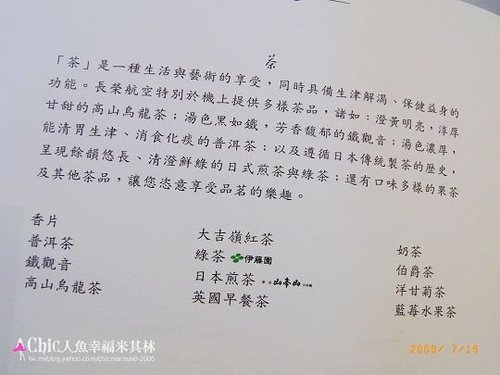 茶
「茶」是一種生活與藝術的享受，同時具備生津解渴、保健益身的
功能。長榮航空特別於機上提供多樣茶品，諸如：澄黃明亮，淳厚
甘甜的高山烏龍茶；湯色黑如鐵，芳香馥郁的鐵觀音；湯色濃厚，
能清胃生津、消食化痰的普洱茶；以及遵循日本傳統製茶的歷史，
呈現餘韻悠長、清澄鮮綠的日式煎茶與綠茶；還有口味多樣的果茶
及其他茶品，讓您恣意享受品茗的樂趣。
香片
普洱茶
鐵觀音
高山烏龍茶
大吉嶺紅茶
綠茶 伊藤園
日本煎茶 山本山
英國早餐茶
奶茶
伯爵茶
洋甘菊茶
藍莓水果茶
Chic人魚幸福米其林
tw.myblog.yahoo.com/chicmermaid-2006
2009/ 7/19